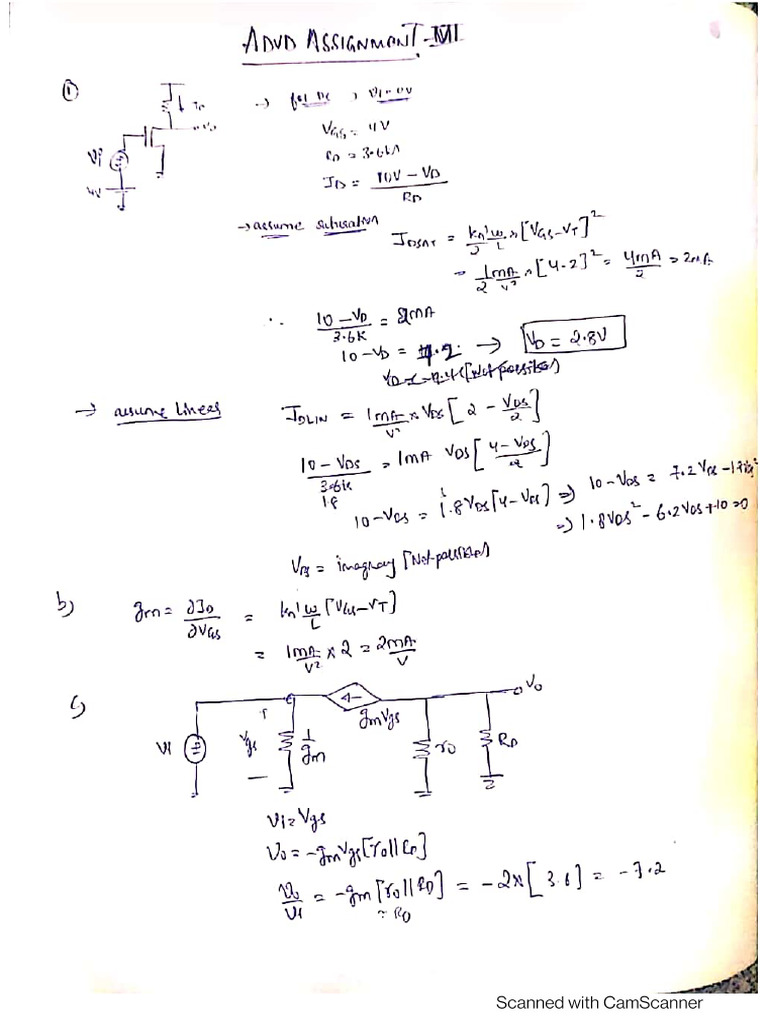 ADVD ASSIGNMENT-VII
①
→ for DC, Vi=0V
Vi
4V
VGS = 4V
RD = 3.6kΛ
ID = 10V - VD / RD
→ assume saturation
IDSAT = kn'/2 W/L × [VGS-VT]²
= 1/2 mA/V² × [4-2]² = 4mA/2 = 2mA
∴ 10-VD / 3.6K = 2mA
10-VD = 7.2 → VD = 2.8V
[Not possible)
→ assume linear
IDLIN = 1mA/V² × VDS [2 - VDS/2]
10-VDS / 3.6k = 1mA VDS [4-VDS / 2]
1.8
10-VDS = 1.8VDS[4-VDS] ⇒ 10-VDS = 7.2VDS-1.8VDS²
⇒ 1.8VDS² - 6.2VDS+10=0
VDS = imaginary [Not possible)
b) gm = ∂ID/∂VGS = kn' W/L [VGS-VT]
= 1mA/V² × 2 = 2mA/V
c)
Vi
Vgs
1/gm
gmVgs
ro
RD
Vo
Vi=Vgs
Vo = -gmVgs[ro||RD]
Vo/Vi = -gm[ro||RD] = -2×[3.6] = -7.2
≈ RD
Scanned with CamScanner